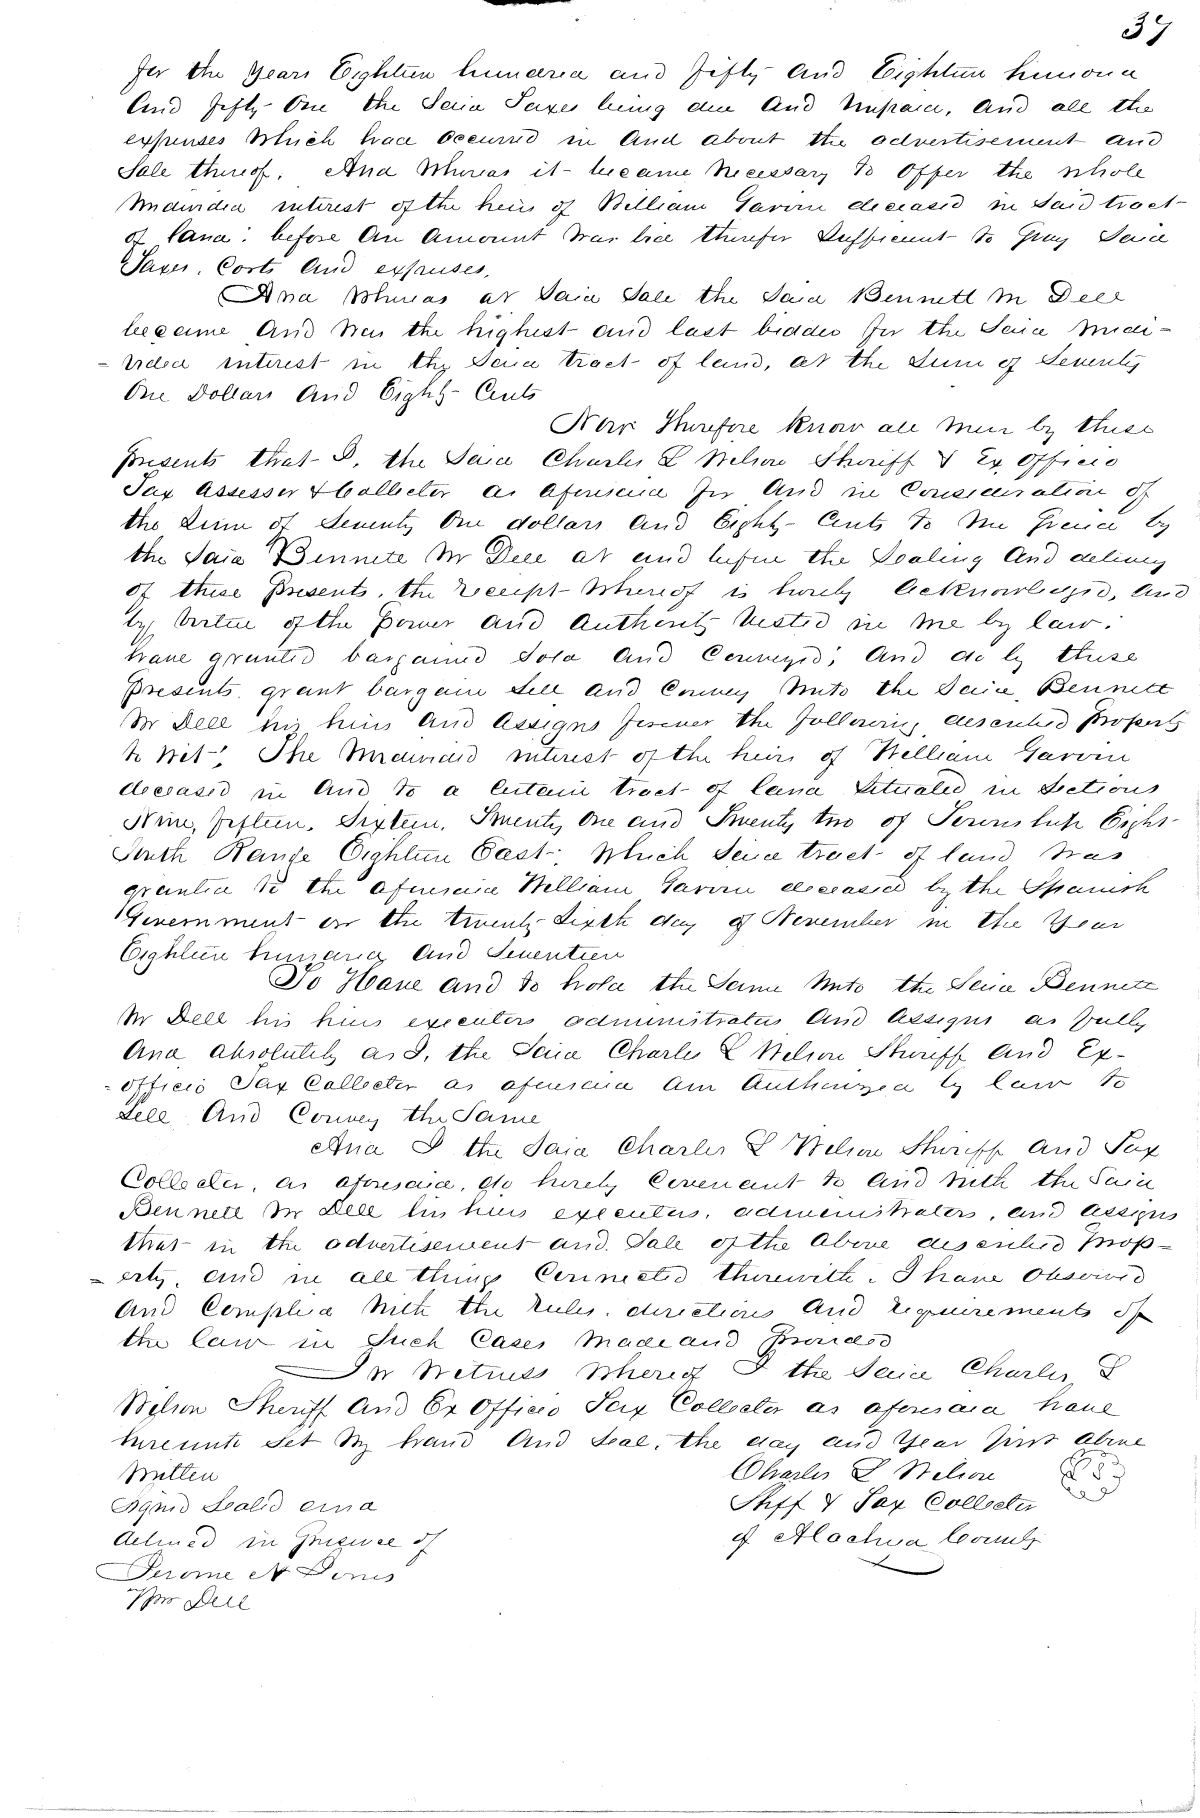 37
for the years Eighteen hundred and fifty and Eighteen hundred
And fifty One the Said Taxes being due And Unpaid, and all the
expenses Which had Occurred in And about the advertisement and
Sale thereof. And Whereas it became Necessary to Offer the whole
Undivided interest of the heirs of William Garvin deceased in Said tract
of land: before An Amount Was bid therefor Sufficient to pay Said
Taxes, Costs And expenses.
And Whereas at Said Sale the Said Bennett M Dell
became And Was the highest and last bidder for the Said Undi-
-vided interest in the Said tract of land, at the Sum of Seventy
One Dollars And Eighty Cents
Now Therefore Know all Men by these
presents that I, the Said Charles L Wilson Sheriff & Ex Officio
Tax Assessor & Collector as aforesaid for And in Consideration of
the Sum of Seventy One dollars And Eighty Cents to Me paid by
the Said Bennett M Dell at and before the Sealing And delivery
of these Presents, the receipt Whereof is hereby Acknowledged, and
by Virtue of the Power and Authority Vested in Me by law:
have granted bargained Sold And Conveyed; And do by these
Presents grant bargain Sell and Convey Unto the Said Bennett
M Dell his heirs And Assigns forever the following described Property
to Wit: The Undivided interest of the heirs of William Garvin
deceased in And to a Certain tract of land Situated in Sections
Nine, fifteen, Sixteen, Twenty One and Twenty two of Township Eight
South Range Eighteen East; Which Said tract of land Was
granted to the aforesaid William Garvin deceased by the Spanish
Government on the twenty Sixth day of November in the Year
Eighteen hundred And Seventeen
To Have and to hold the Same Unto the Said Bennett
M Dell his heirs executors administrators And Assigns as fully
And absolutely as I, the Said Charles L Wilson Sheriff And Ex-
-officio Tax Collector as aforesaid Am Authorized by law to
Sell And Convey the Same
And I the Said Charles L Wilson Sheriff And Tax
Collector, as aforesaid, do hereby Covenant to and With the Said
Bennett M Dell his heirs executors, administrators, and assigns
that in the advertisement and Sale of the Above described Prop-
-erty, and in all things Connected therewith, I have Observed
And Complied With the rules, directions And requirements of
the law in Such Cases Made and Provided
In Witness Whereof I the Said Charles L
Wilson Sheriff And Ex Officio Tax Collector as aforesaid have
hereunto Set My hand And Seal, the day and Year first Above
Written Charles L Wilson LS
Signed Sealed and Shff & Tax Collector
delivered in Presence of of Alachua County
Jerome N
Wm Dell